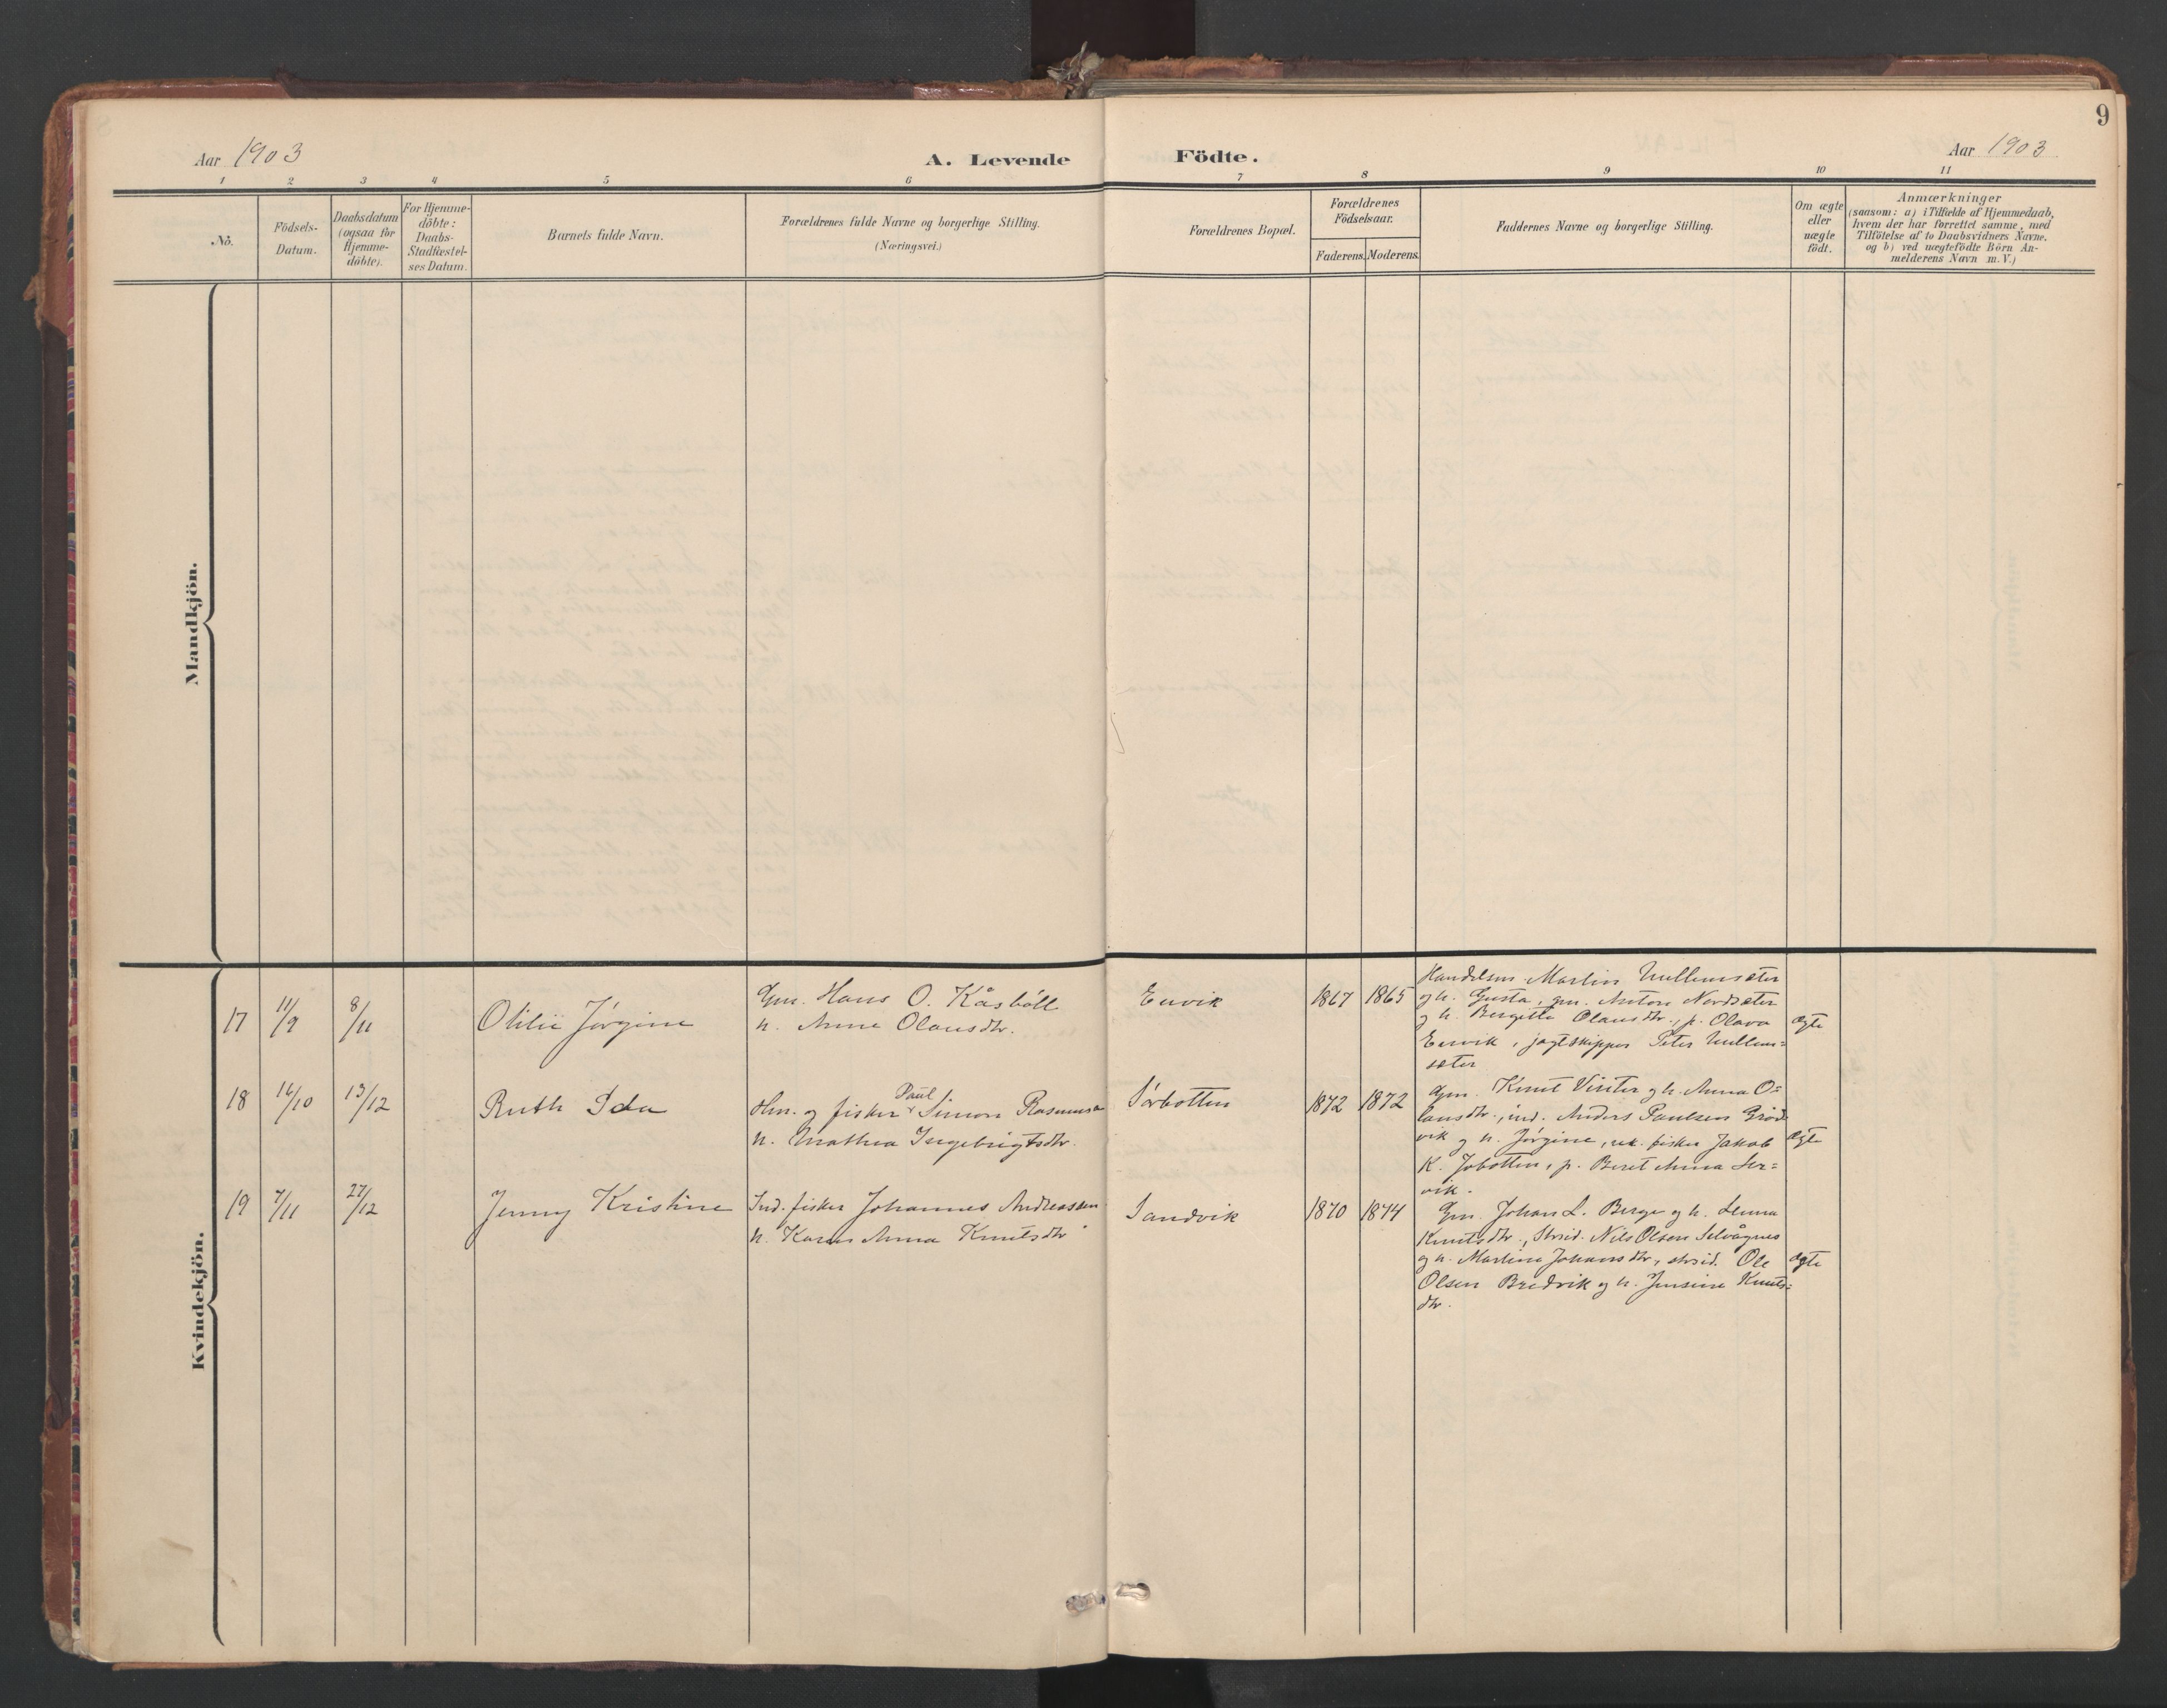 9
Aar 1903
A. Levende Födte.
Aar 1903
1 2 3 4 5 6 7 8 9 10 11
No.
Födsels-Datum.
Daabsdatum (ogsaa for Hjemme-döbte).
For Hjemme-döbte: Daabs-Stadfæstel-ses Datum.
Barnets fulde Navn.
Forældrenes fulde Navne og borgerlige Stilling.
(Næringsvei.)
Forældrenes Bopæl.
Forældrenes Födselsaar.
Faderens. Moderens.
Faddernes Navne og borgerlige Stilling.
Om ægte eller uægte födt.
Anmærkninger
(saasom: a) i Tilfælde af Hjemmedaab,
hvem der har forrettet samme, med
Tilföielse af to Daabsvidners Navne.
og b) ved uægtefödte Börn An-
melderens Navn m. V.)
Mandkjön.
Kvindekjön.
17 11/9 8/11 Otilie Jørgine
Gm. Hans O. Kåsböll
h. Anne Olausdtr.
Envik 1867 1865
Handelsm. Martin
og h. Gusta, gm. Anton Nordsæter
og h. Bergitte Olausdtr., p. Olava
Envik, jagtskipper Peter
sæter
ægte
18 16/10 13/12 Ruth Ida
Paul
Hm. og fisker Simon Rasmussen
h. Mathea Ingebrigtsdtr.
Sørbotten 1872 1872
Gm. Knut Visiter og h. Anna O=
lausdtr., ind. Anders Paulsen Grød
vik og h. Jørgine, uk. fisker Jakob
K. Jobotten, p. Beret Anna Ler=
vik.
ægte
19 7/11 27/12 Jenny Kristine
Ind. fisker Johannes Andreassen
h. Karen Anna Knutsdtr
Sandvik 1870 1874
Gm. Johan L. Berge og h. Lenna
Knutsdtr., Strsid. Nils Olsen Selvågnes
og h. Martine Johansdtr, strsid. Ole
Olsen Bredvik og h. Jensine Knuts=
dtr.
ægte